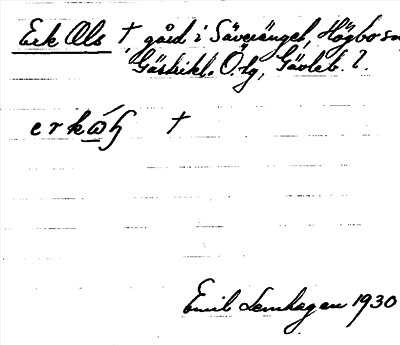 Erk Ols †, gård i Säveränget, Högbo sn
Gästrikl. Ö. tg, Gävleb. l.
erkώɧ †
Emil Lemhagen 1930